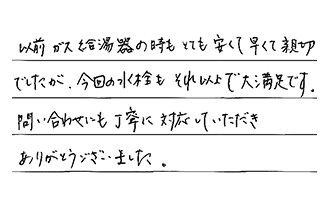 以前ガス給湯器の時もとても安くて早くて親切
でしたが、今回の水栓もそれ以上で大満足です。
問い合わせにも丁寧に対応していただき
ありがとうございました。